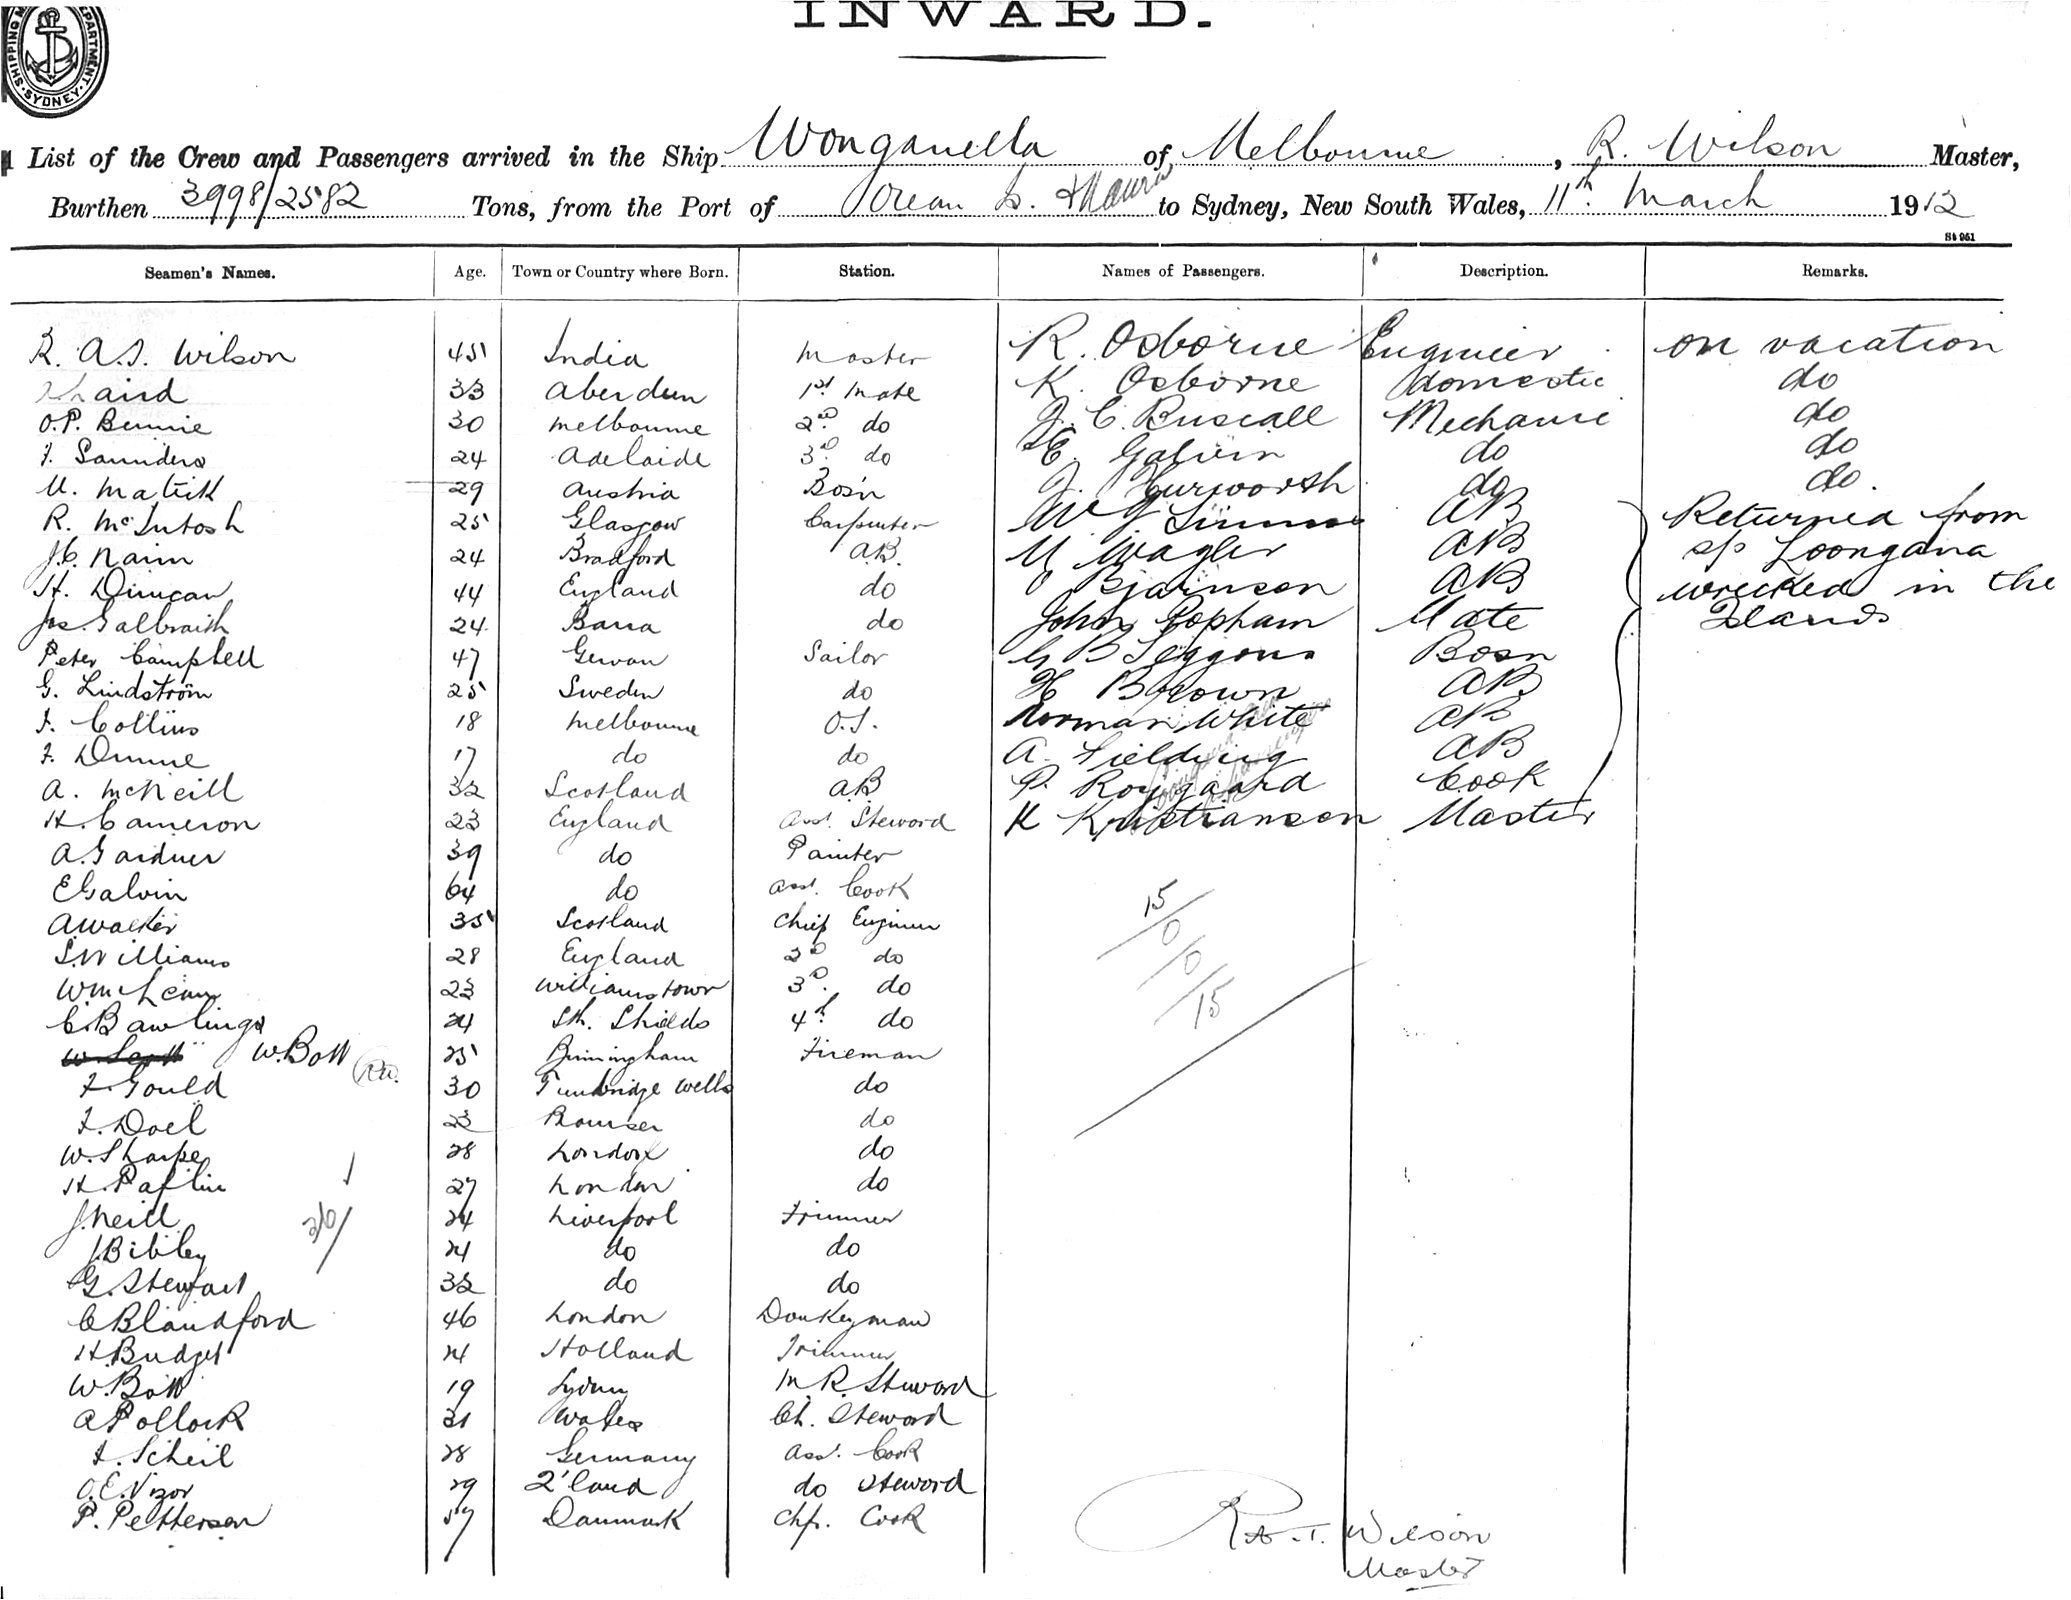 INWARD.
SHIPPING DEPARTMENT. SYDNEY.
List of the Crew and Passengers arrived in the Ship Wonganella of Melbourne, R. Wilson Master,
Burthen 3998/2582 Tons, from the Port of Ocean Is. & Nauru to Sydney, New South Wales, 11th March 1912
St 961
Seamen's Names. Age. Town or Country where Born. Station. Names of Passengers. Description. Remarks.
R. A.T. Wilson 45 India Master R. Osborne Engineer on vacation
Laird 33 Aberdeen 1st Mate K. Osborne domestic do
O.P. Bennie 30 Melbourne 2nd do J. C. Buscall Mechanic do
F. Saunders 24 Adelaide 3rd do E. Galvin do do
M. Matick 29 Austria Bosn J. Hurworth do do.
R. McIntosh 25 Glasgow Carpenter W J AB Returned from
J.C. Nairn 24 Bradford A.B. M Wagler AB s/s Loongana
H. Duncan 44 England do O Bjarnson AB wrecked in the
Jas. Galbraith 24 Barra do John Popham Mate Islands
Peter Campbell 47 Girvan Sailor G B Seggons Bosn
G. Lindström 25 Sweden do H Brown AB
F. Collins 18 Melbourne O.S. Norman White AB
F. Dunne 17 do do A. Fielding AB
A. McNeill 32 Scotland AB P. Roygaard Cook
H. Cameron 23 England Asst. Steward K Kristiansen Master
A. Gardner 39 do Painter
E Galvin 64 do Asst. Cook
A. Walker 35 Scotland Chief Engineer
S. Williams 28 England 2nd do
W. McLean 23 Williamstown 3rd. do
C. Bawlings 24 Sth. Shields 4th do
W. Scott W. Bott RW. 25 Birmingham Fireman
F. Gould 30 Tunbridge Wells do
F. Doel 23 do
W. Sharpe 28 London do
H. Paflin 27 London do
J. Neill 24 Liverpool Trimmer
J. Bibley 24 do do
G. Stewart 32 do do
C Blandford 46 London Donkeyman
H. Budget 24 Holland Trimmer
W. Bott 19 Sydney M R. Steward
A Pollock 31 Wales Ch. Steward
F. Scheil 28 Germany Asst. Cook
O.E. Vizor 29 Q'land do Steward
P. Petterson 57 Danmark Chf. Cook
15/0/0/15
36/
R. A. T. Wilson
Master